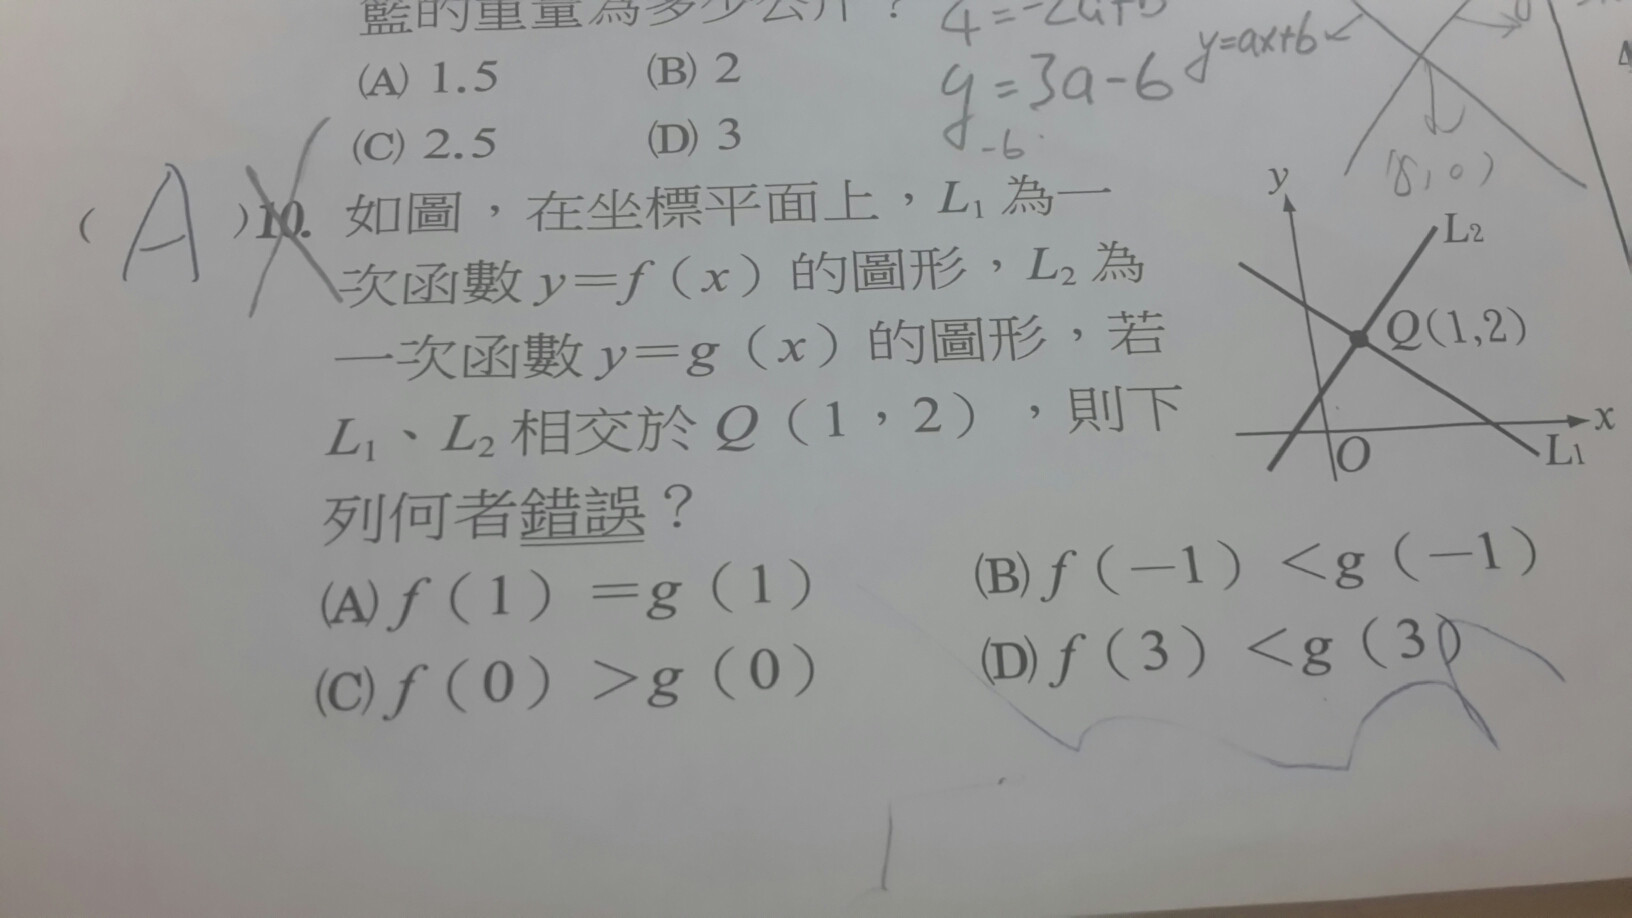 籃的重量為多少公斤？
4=-2a+b
(A) 1.5 (B) 2
y=3a-6 y=ax+b
(C) 2.5 (D) 3
-6
(8,0)
( A )10. 如圖，在坐標平面上，L₁ 為一
次函數 y=f（x）的圖形，L₂ 為
一次函數 y=g（x）的圖形，若
L₁、L₂ 相交於 Q（1，2），則下
列何者錯誤？
y
L₂
Q(1,2)
x
O
L₁
(A) f（1）=g（1） (B) f（-1）<g（-1）
(C) f（0）>g（0） (D) f（3）<g（3）